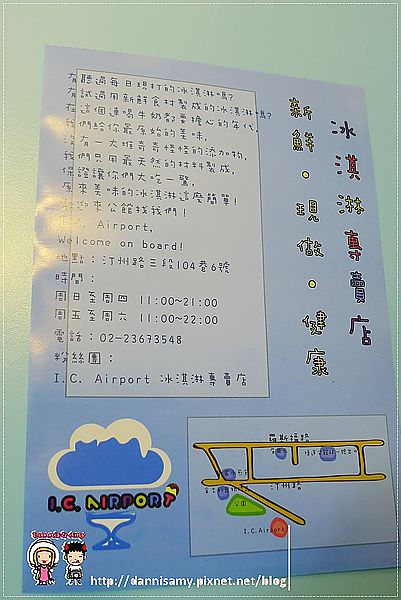 冰淇淋專賣店
新鮮・現做・健康
有聽過每日現打的冰淇淋嗎?
有試過用新鮮食材製成的冰淇淋嗎?
在這個連喝牛奶都要擔心的年代,
我們給你最原始的美味,
沒有一大堆奇奇怪怪的添加物,
我們只用最天然的材料製成,
保證讓你們大吃一驚,
原來美味的冰淇淋這麼簡單!
歡迎來公館找我們!
I.C. Airport,
Welcome on board!
地點:汀州路三段104巷6號
時間:
周日至周四 11:00~21:00
周五至周六 11:00~22:00
電話:02-23673548
粉絲團:
I.C. Airport 冰淇淋專賣店
I.C. AIRPORT
羅斯福路
汀州路
公園
I.C. Airport
http://dannisamy.pixnet.net/blog